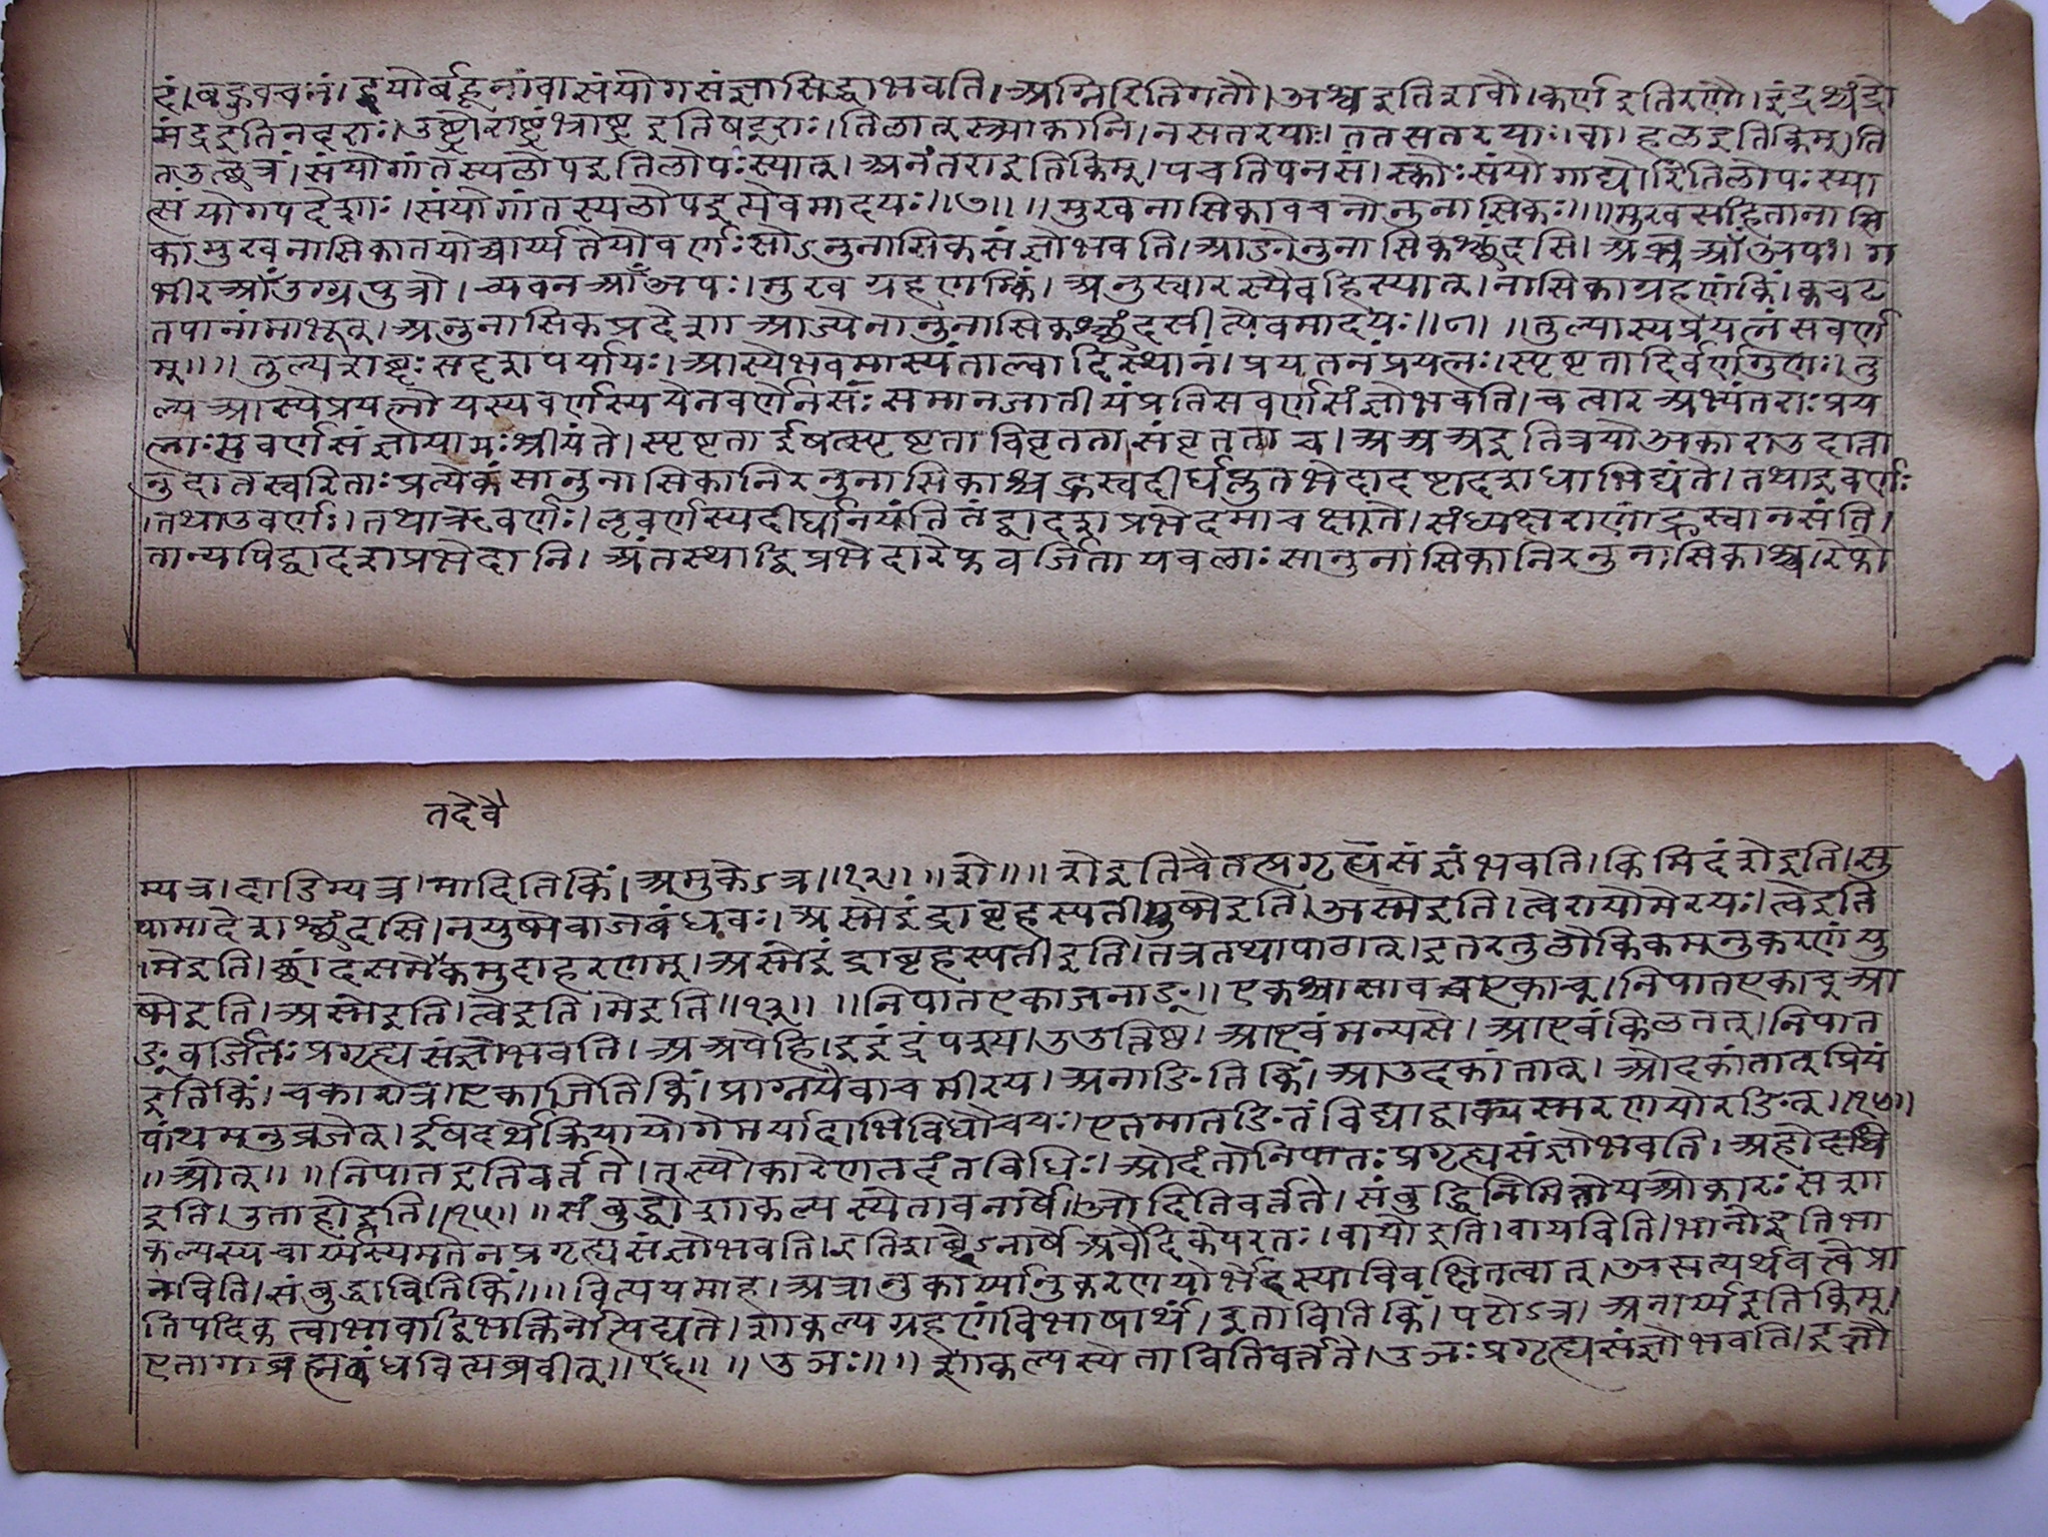 दं।बहुवचनं।द्वयोर्बहूनांवासंयोगसंज्ञासिद्धाभवति।अग्निरितिगतौ।अश्वइतिशवौ।कर्णइतिरणौ।इंद्रश्चंद्रो
मंद्रइतिनदराः।उष्ट्रोराष्ट्रंभ्राष्ट्रइतिषटराः।तिलात्स्त्र्याकानि।नसतरयाः।ततसतरयाः।वा।हलइतिकिम्।ति
तउत्छत्रं।संयोगांतस्यलोपइतिलोपःस्यात्।अनंतराइतिकिम्।पचतिपनसं।स्कोःसंयोगाद्योरितिलोपःस्या
त्संयोगपदेशाः।संयोगांतस्यलोपइत्येवमादयः॥७॥॥मुखनासिकावचनोनुनासिकः॥॥मुखसहितानासि
कामुखनासिकातयोच्चार्य्यतेयोवर्णःसोऽनुनासिकसंज्ञोभवति।आङोनुनासिकश्छंदसि।अभ्रआँअपः।ग
भीरआँउग्रपुत्रो।च्यवनआँअपः।मुखग्रहणंकिं।अनुस्वारस्यैवहिस्यात्।नासिकाग्रहणंकिं।कचट
तपानांमाभूत्।अनुनासिकप्रदेशाआज्येनानुनासिकश्छंदसीत्येवमादयः॥८॥॥तुल्यास्यप्रयत्नंसवर्ण
म्॥॥तुल्यशब्दःसदृशपर्यायः।आस्येभवमास्यंताल्वादिस्थानं।प्रयतनंप्रयत्नः।स्पृष्टतादिर्वर्णगुणः।तु
ल्यआस्येप्रयत्नोयस्यवर्णस्ययेनवर्णेनसःसमानजातीयंप्रतिसवर्णसंज्ञोभवति।चत्वारआभ्यंतराःप्रय
त्नाःसवर्णसंज्ञायामःश्रीयंते।स्पृष्टताईषत्स्पृष्टताविवृततासंवृतताच।अअअइतित्रयोअकाराउदात्ता
नुदातस्वरिताःप्रत्येकंसानुनासिकानिरनुनासिकाश्चह्रस्वदीर्घप्लुतभेदादष्टादशधाभिद्यंते।तथाइवर्णः
।तथाउवर्णः।तथाऋवर्णः।लृवर्णस्यदीर्घानयंतितंद्वादशप्रभेदमाचक्षते।संध्यक्षराणांह्रस्वानसंति।
तान्यपिद्वादशप्रभेदानि।अंतस्थाद्विप्रभेदारेफवर्जितायवलाःसानुनासिकानिरनुनासिकाश्च।रेफो
तदेवै
म्यत्र।दाडिम्यत्र।मादितिकिं।अमुकेऽत्र॥१२॥॥शे॥॥शेइतिचैतत्प्रगृह्यसंज्ञंभवति।किमिदंशेइति।सु
पामादेशश्छंदसि।नयुष्मेवाजबंधवः।अस्मेइंद्राबृहस्पतीयुष्मेइति।अस्मेइति।त्वेरायोमेरयः।त्वेइति
।मेइति।छांदसमेकमुदाहरणम्।अस्मेइंद्राबृहस्पतीइति।तत्रतथापाठात्।इतरतुलौकिकमनुकरणंयु
ष्मेइति।अस्मेइति।त्वेइति।मेइति॥१३॥॥निपातएकाजनाङ्॥एकश्चासावच्चएकाच्।निपातएकाच्आ
ङ्वर्जितःप्रगृह्यसंज्ञोभवति।अअपेहि।इइंद्रंपश्य।उउत्तिष्ठ।आएवंमन्यसे।आएवंकिलतत्।निपात
इतिकिं।चकारात्र।एकाजितिकिं।प्राग्नयेवाचमीरय।अनाङितिकिं।आउदकांतात्।ओदकांतात्प्रियं
पांथमनुव्रजेत्।ईषदर्थेक्रियायोगेमर्यादाभिविधौचयः।एतमातङितंविद्याद्वाक्यस्मरणयोरङित्॥१४॥
॥ओत्॥॥निपातइतिवर्त्तते।तस्यौकारेणतदंतविधिः।ओदंतोनिपातःप्रगृह्यसंज्ञोभवति।अहो
इति।उताहोइति॥१५॥॥संबुद्धौशाकल्यस्येतावनार्षे।ओदितिवर्त्तते।संबुद्धिनिमित्तोयओकारःसशा
कल्यस्यचार्य्यस्यमतेनप्रगृह्यसंज्ञोभवति।इतिशब्देऽनार्षेअवैदिकेपरतः।वायोइति।वायविति।भानोइतिभा
नविति।संबुद्धावितिकिं॥॥वित्ययमाह।अत्रानुकार्य्यानुकरणयोर्भेदस्याविवक्षितत्वात्।असत्यर्थवत्त्वेप्रा
तिपदिकत्वाभावाद्विभक्तिर्नोत्पद्यते।शाकल्यग्रहणंविभाषार्थं।इतावितिकिं।पटोऽत्र।अनार्य्यइतिकिम्।
एतागाब्रह्मबंधवित्यब्रवीत्॥१६॥॥उञः॥॥शाकल्यस्येतावितिवर्त्तते।उञःप्रगृह्यसंज्ञोभवति।इतौ